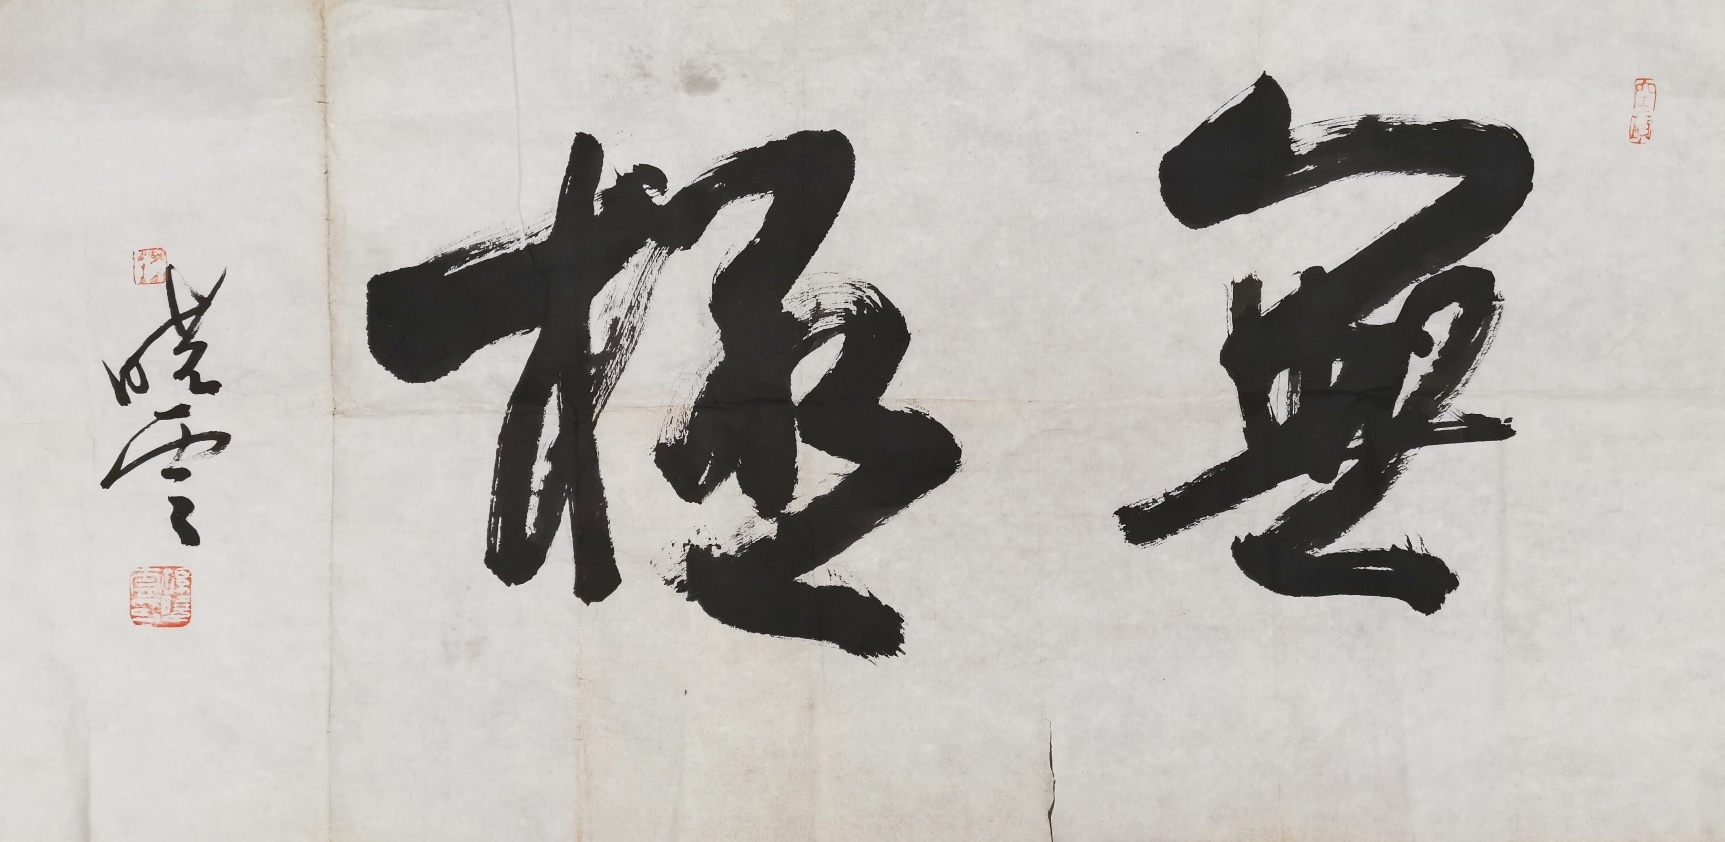 無極
曉雲